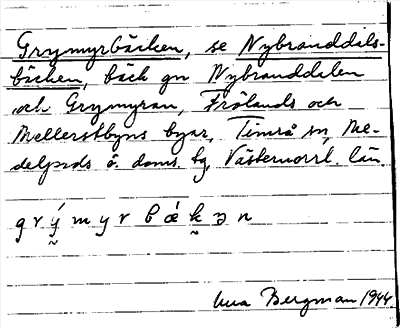 Grymyrbäcken, se Nybranddals-
bäcken, bäck gn Nybranddalen
och Grymyran, Frölands och
Mellerstbyns byar, Timrå sn, Me-
delpads ö. doms. tg, Västernorrl. län.
g r ý m y r b ǽ k ə n
Bergman 1944.